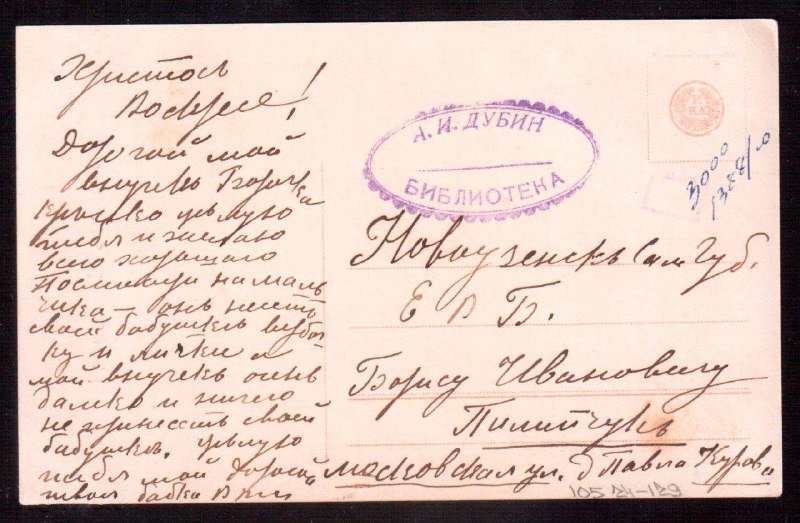 Христосъ
Воскресе!
Дорогой мой
внучекъ Борочка
крѣпко цѣлую
тебя и желаю
всего хорошаго
Посмотри на маль
чика — онъ несетъ
своей бабушкѣ вербоч
ку и яички а
мой внучекъ очень
далеко и ничего
не принесетъ своей
бабушкѣ. цѣлую
тебя мой дорогой
твоя бабка
А. И. ДУБИН
БИБЛИОТЕКА
3000
1388/10
Новоузенскъ Сам Губ.
Е В Б.
Борису Ивановичу
Пилипчукъ
Московская ул. д Павла Курова
105 24-129